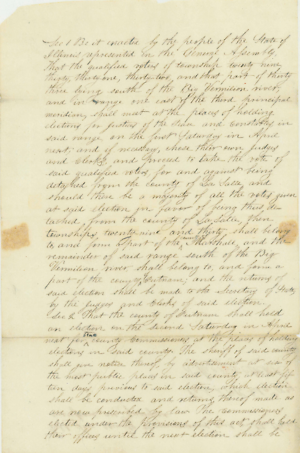 Sec 1 Be it enacted by the people of the State of
Illinois represented in the General Assembly,
That the qualified voters of township twenty nine
thirty, thirty one, thirty two, and that part of thirty
three lying south of the Big Vermilion river,
and in range one east of the third principal
meridian, shall meet at the places of holding
elections for justices of the peace and constables in
said range on the first Saturday in April
next, and if necessary, chose their own judges
and clerks and proceed to take the vote of
said qualified voters for and against being
detached from the county of La Salle, and
should there be a majority of all the votes given
at said election in favor of being thus de
tached from the county of La Salle, then
townships twenty nine and thirty shall belong
to and form a part of the Marshall, and the
remainder of said range south of the Big
Vermilion river shall belong to and form a
part of the county of Putnam, and the returns of
said election shall be made to the Secretary of State
by the judges and clerks of said election.
Sec 2 That the county of Putnam shall hold
an election on the second Saturday in April
next for county commissioners at the places of holding
elections in said county. The sheriff of said county
shall give notice thereof by advertisement at six of
the most public places in said county at least fif
teen days previous to said election, which election
shall be conducted and returns thereof made as
are now prescribed by law. The commissioners
elected under the provisions of this act shall hold
their offices until the next election shall be